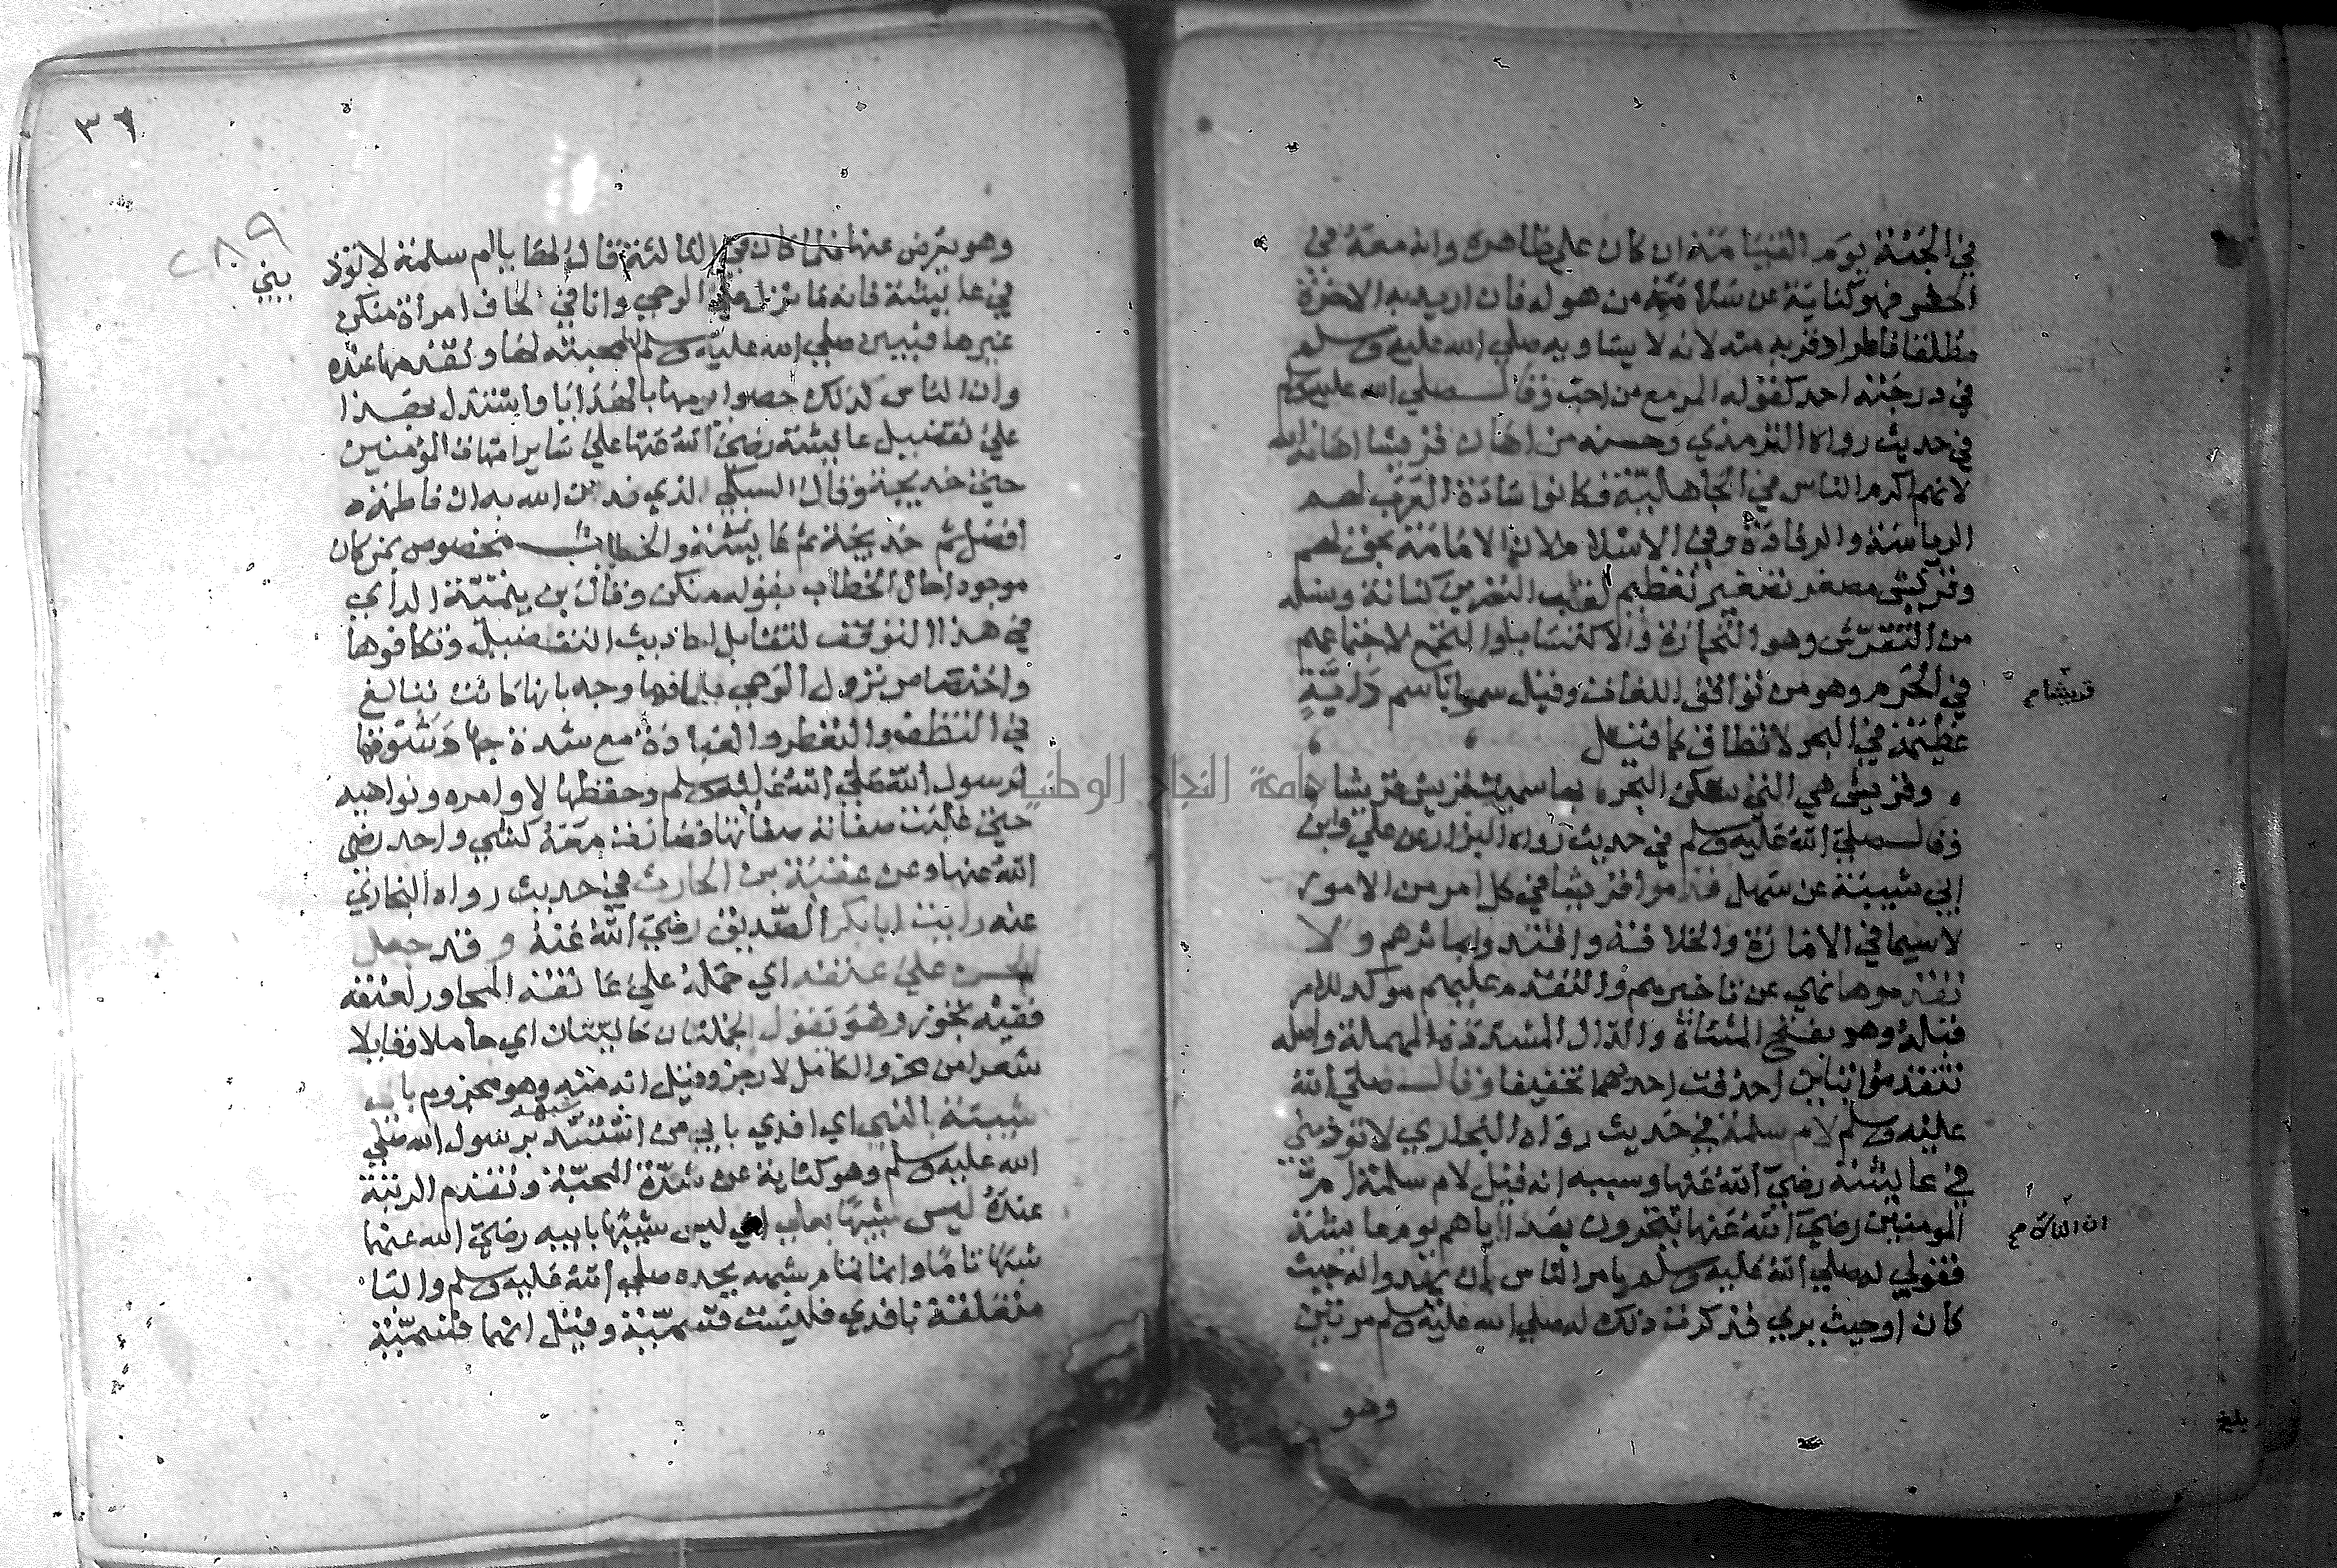 في الجنة يوم القيامة ان كان على ظاهره وانه معه في
الحشر فهو كناية عن سلامته من هوله فان اريد به الاخرة
مطلقا فالمراد قربه منه لانه لا يساويه صلي الله عليه وسلم
في درجته احد كقوله المرء مع من احب وقال صلي الله عليه وسلم
في حديث رواه الترمذي وحسنه من اهان قريشا اهانه الله
لانهم اكرم الناس في الجاهلية فكانوا سادة العرب لهم
الرياسة والرفادة وفي الاسلام لان الامامة بحق لهم
وقريش مصغر تصغير تعظيم لقب النضر بن كنانة ونسله
من التقرش وهو التجارة والاكتساب او التجمع لاجتماعهم
في الحرم وهو من توافق اللغات وقيل سموا باسم دابة
قريشا م
عظيمة في البحر لا تطاق كما قيل
وقريش هي التي تسكن البحر بها سميت قريش قريشا
وقال صلي الله عليه وسلم في حديث رواه البزار عن علي وابن
ابي شيبة عن سهل قدموا قريشا في كل امر من الامور
لا سيما في الامارة والخلافة واقتدوا بهم ولا
تقدموها نهي عن تاخيرهم والتقدم عليهم موكد للامر
قبله وهو بفتح المثناة والدال المشددة المهملة واصله
تتقدموا بتاين احذفت احدهما تخفيفا وقال صلي الله
عليه وسلم لام سلمة في حديث رواه البخاري لا توذيني
في عايشة رضي الله عنها وسببه انه قيل لام سلمة ام
المومنين رضي الله عنها يتحرون بهداياهم يوم عايشة
ان الناس م
فقولي له صلي الله عليه وسلم يامر الناس بان يهدوا له حيث
كان او حيث يري فذكرت ذلك له صلي الله عليه وسلم مرتين
وهو
بلغ
٣٦
٢٨٩
وهو يعرض عنها فلما كان في الثالثة قال لها يا ام سلمة لا توذ
يني
في عايشة فانه ما نزل علي الوحي وانا في لحاف امراة منكن
غيرها فتبين صلي الله عليه وسلم محبته لها وتقدمها عنده
وان الناس لذلك خصوا يومها بالهدايا واستدل بهذا
علي تفضيل عايشة رضي الله عنها علي ساير امهات المؤمنين
حتي خديجة وقال السبكي الذي ندين الله به ان فاطمة
افضل ثم خديجة ثم عايشة والخطاب مخصوص بمن كان
موجودا حال الخطاب بقوله منكن وقال بن تيمية الراي
في هذا التوقف لتقابل احاديث التفضيل وتكافوها
واختصاص نزول الوحي بلحافها وجه بانها كانت تبالغ
في التنظف والتعطر والعبادة مع شدة حبها وشوقها
لرسول الله صلى الله عليه وسلم وحفظها لاوامره ونواهيه
حتي غلبت صفاته صفاتها فصارت معه كشي واحد رضي
الله عنها وعن عقبة بن الحارث في حديث رواه البخاري
عنه رايت ابا بكر الصديق رضي الله عنه وقد جعل
الحسن علي عنقه اي حمله علي عاتقه المجاور لعنقه
ففيه تجوز وهو يقول الجملتان حاليتان اي حاملا وقايلا
شعرا من مجزو الكامل لا رجز وقيل انه منه وهو مجزوم بابي
شبيه بالنبي اي افدي بابي من اشتد شبهه برسول الله صلي
الله عليه وسلم وهو كناية عن شدة المحبة وتقدم الرتبة
عنده ليس شبيها بعلي اي ليس شبيها بابيه رضي الله عنهما
شبها تاما وانما تمام شبهه بجده صلي الله عليه وسلم والبا
متعلقة بافدي فليست قسمية وقيل انها قسمية
جامعة النجاح الوطنية